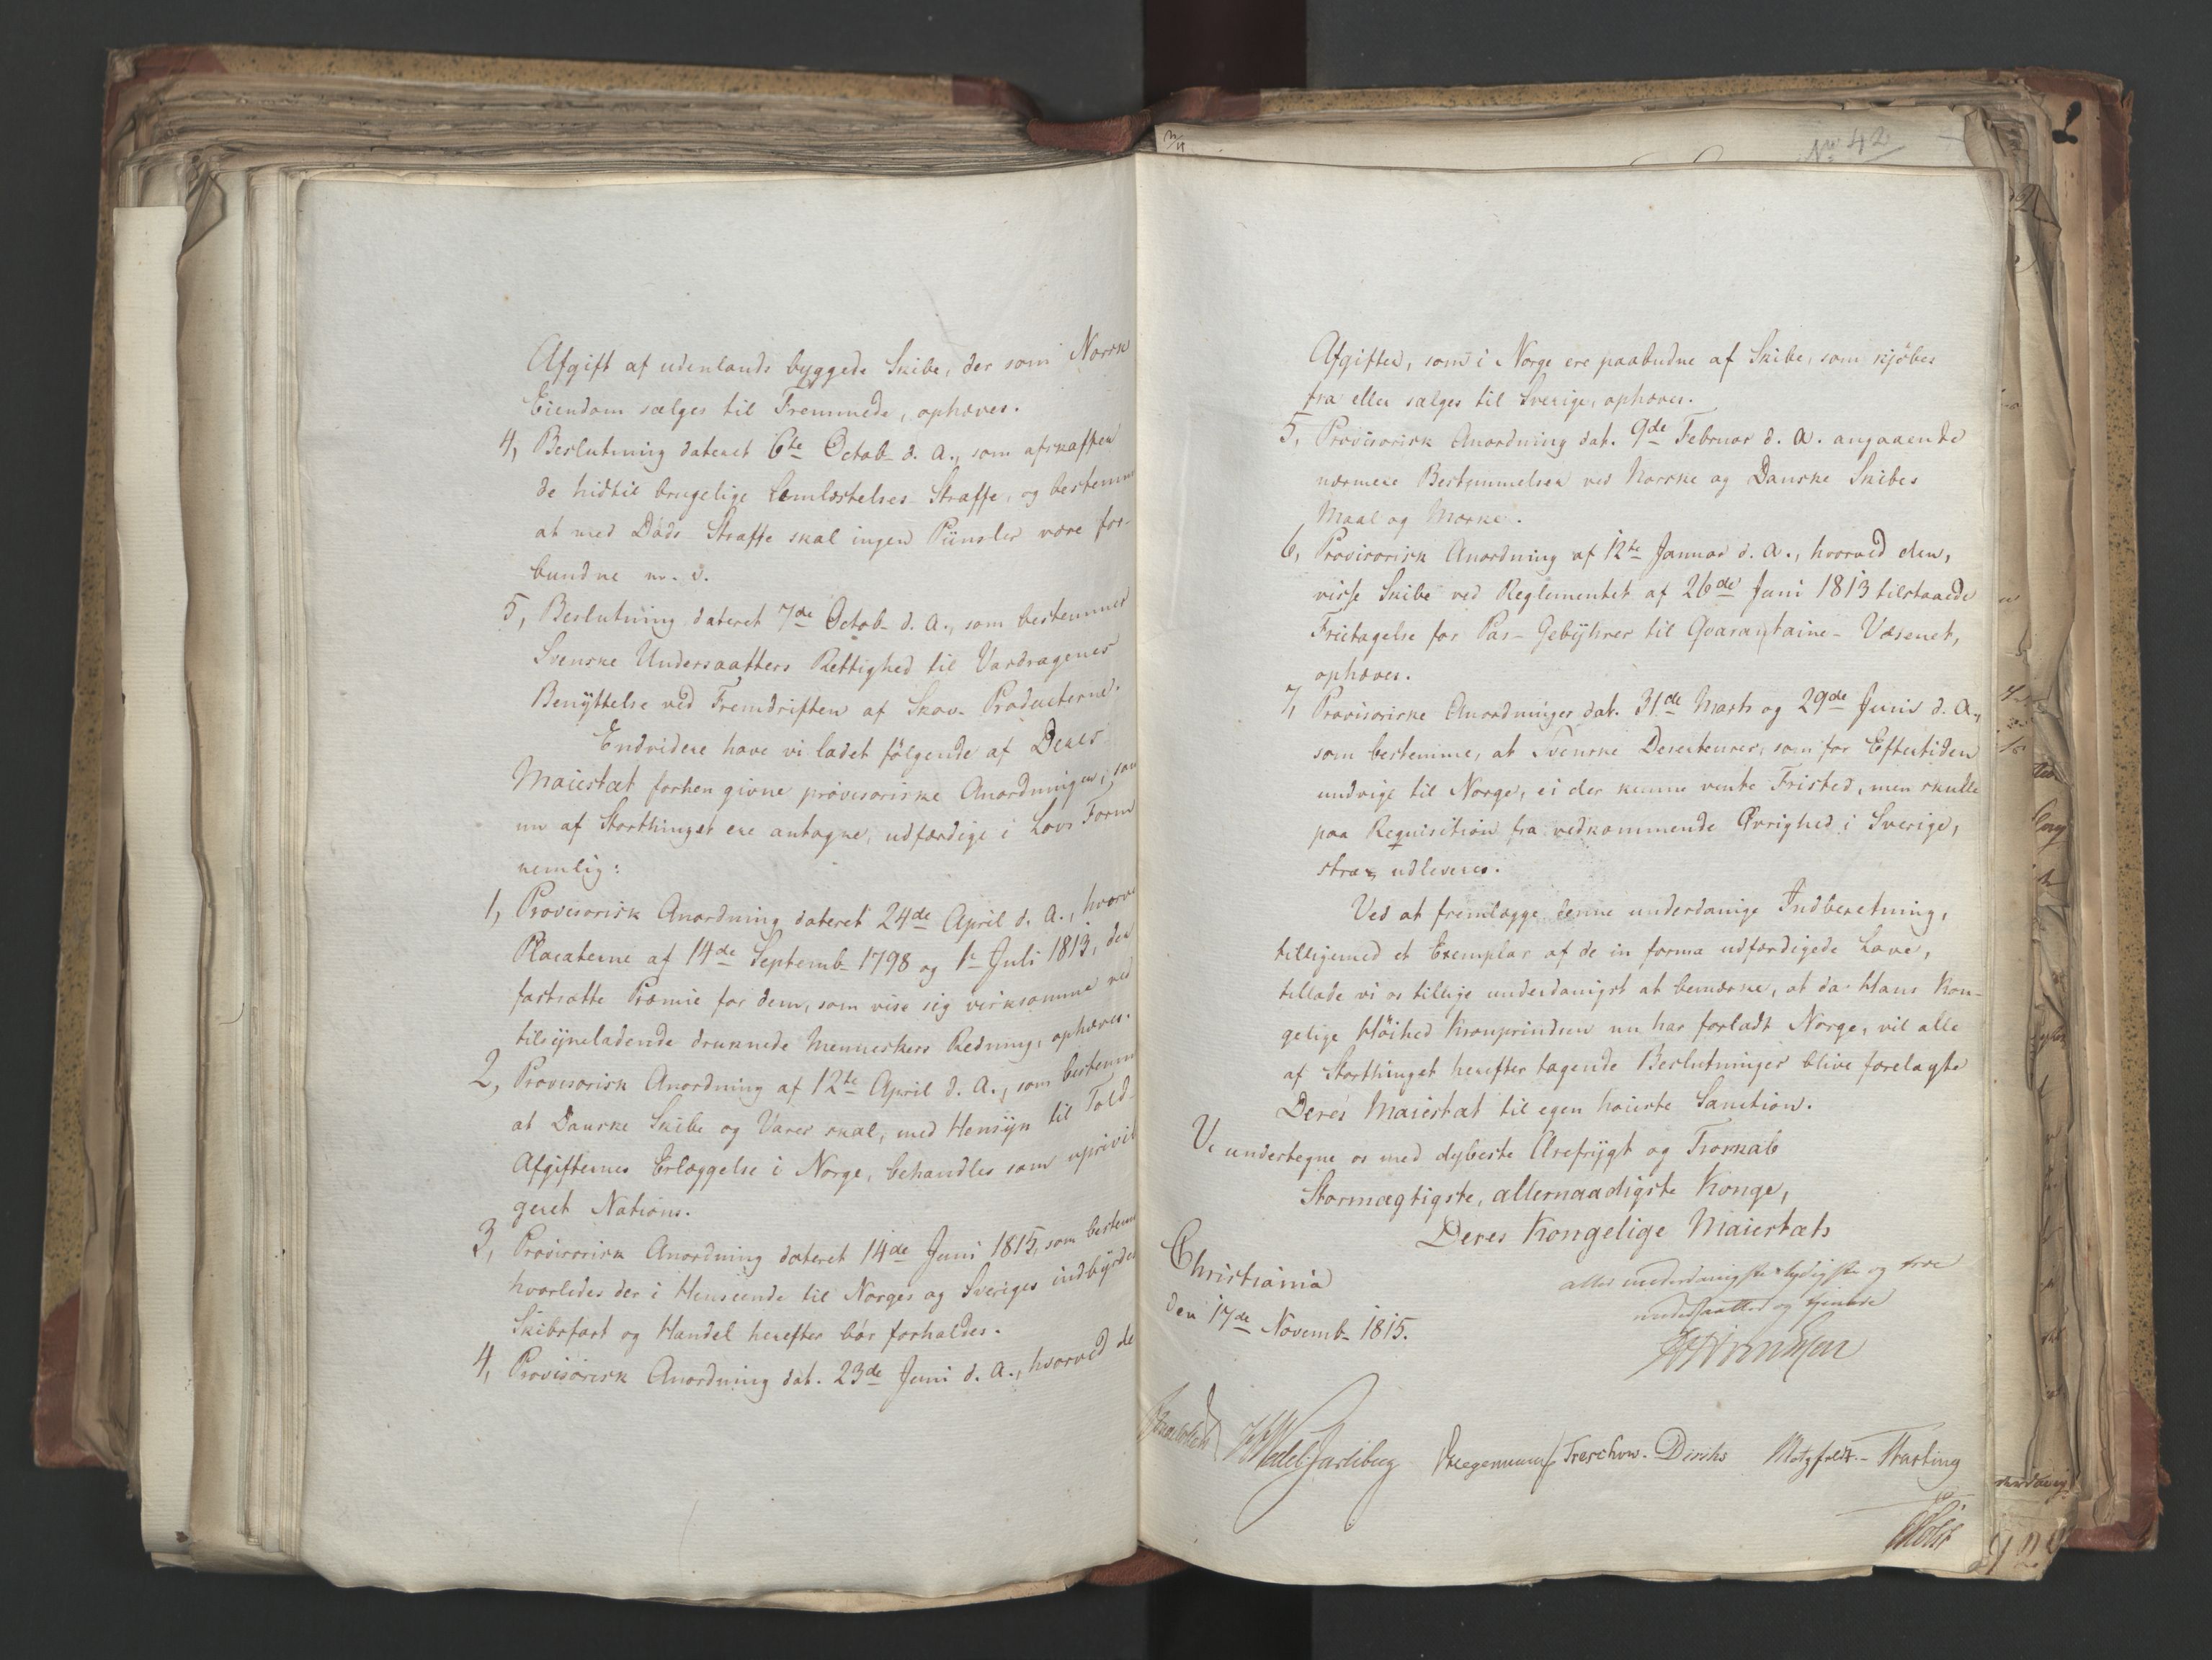 Afgift af udenlands byggede Skibe, der som Norsk
Eiendom sælges til Fremmede, ophæves.
4, Beslutning dateret 6te Octob- d. A., som afskaffer
de hidtil brugelige Lemlæstelses-Straffe, og bestemmer
at med Døds Straffe skal ingen Piinsler være for-
bundne m. v.
5, Beslutning dateret 7de Octob- d. A., som bestemmer
Svenske Undersaatters Rettighed til Vasdragenes
Benyttelse ved Fremdriften af Skov-Producterne.
Endvidere have vi ladet følgende af Deres
Maiestæt forhen givne provisoriske Anordninger, som
nu af Storthinget ere antagne, udfærdige i Lovs Form
nemlig:
1, Provisorisk Anordning dateret 24de April d. A., hvorve
Placaterne af 14de Septemb- 1798 og 1te Juli 1813, der
fastsatte Præmie for dem, som vise sig virksomme ved
tilsyneladende druknede Menneskers Redning, ophæves.
2, Provisorisk Anordning af 12te April d. A., som bestemm
at Danske Skibe og Varer skal, med Hensyn til Told-
Afgifternes Erlæggelse i Norge, behandles som uprivil
geret Nations.
3, Provisorisk Anordning dateret 14de Juni 1815, som bestem
hvorledes der i Henseende til Norges og Sveriges indbyrdes
Skibsfart og Handel herefter bør forholdes.
4, Provisorisk Anordning dat. 23de Juni d. A., hvorved de
No 42
Afgifter, som i Norge ere paabudne af Skibe, som kjöbes
fra eller sælges til Sverige, ophæves.
5, Provisorisk Anordning dat. 9de Februar d. A. angaaende
nærmere Bestemmelser ved Norske og Danske Skibes
Maal og Mærke.
6, Provisorisk Anordning af 12te Januar d. A., hvorved den,
visse Skibe ved Reglementet af 26de Juni 1813 tilstaaede
Fritagelse for Pas-Gebyhrer til Qvarantaine-Væsenet,
ophæves.
7, Provisoriske Anordninger dat. 31de Marts og 29de Juni d. A.,
som bestemme, at Svenske Deserteurer, som for Eftertiden
undvige til Norge, ei der kunne vente Fristed, men skulle
paa Requisition fra vedkommende Øvrighed i Sverige,
strax udleveres.
Ved at fremlægge denne underdanige Indberetning,
tilligemed et Exemplar af de in forma udfærdigede Love,
tillade vi os tillige underdanigst at bemærke, at da Hans Kon-
gelige Höihed Kronprindsen nu har forladt Norge, vil alle
af Storthinget herefter tagende Beslutninger blive forelagte
Deres Maiestæt til egen høieste Sanction.
Vi undertegne os med dybeste Ærefrygt og Troskab
Stormægtigste, allernaadigste Konge,
Deres Kongelige Maiestæts
aller underdanigste lydigste og troe
undersaatter og tjenere
Christiania
den 17de Novemb- 1815.
HWedel Jarlsberg Treschow. Diriks Motzfeldt.
Holst